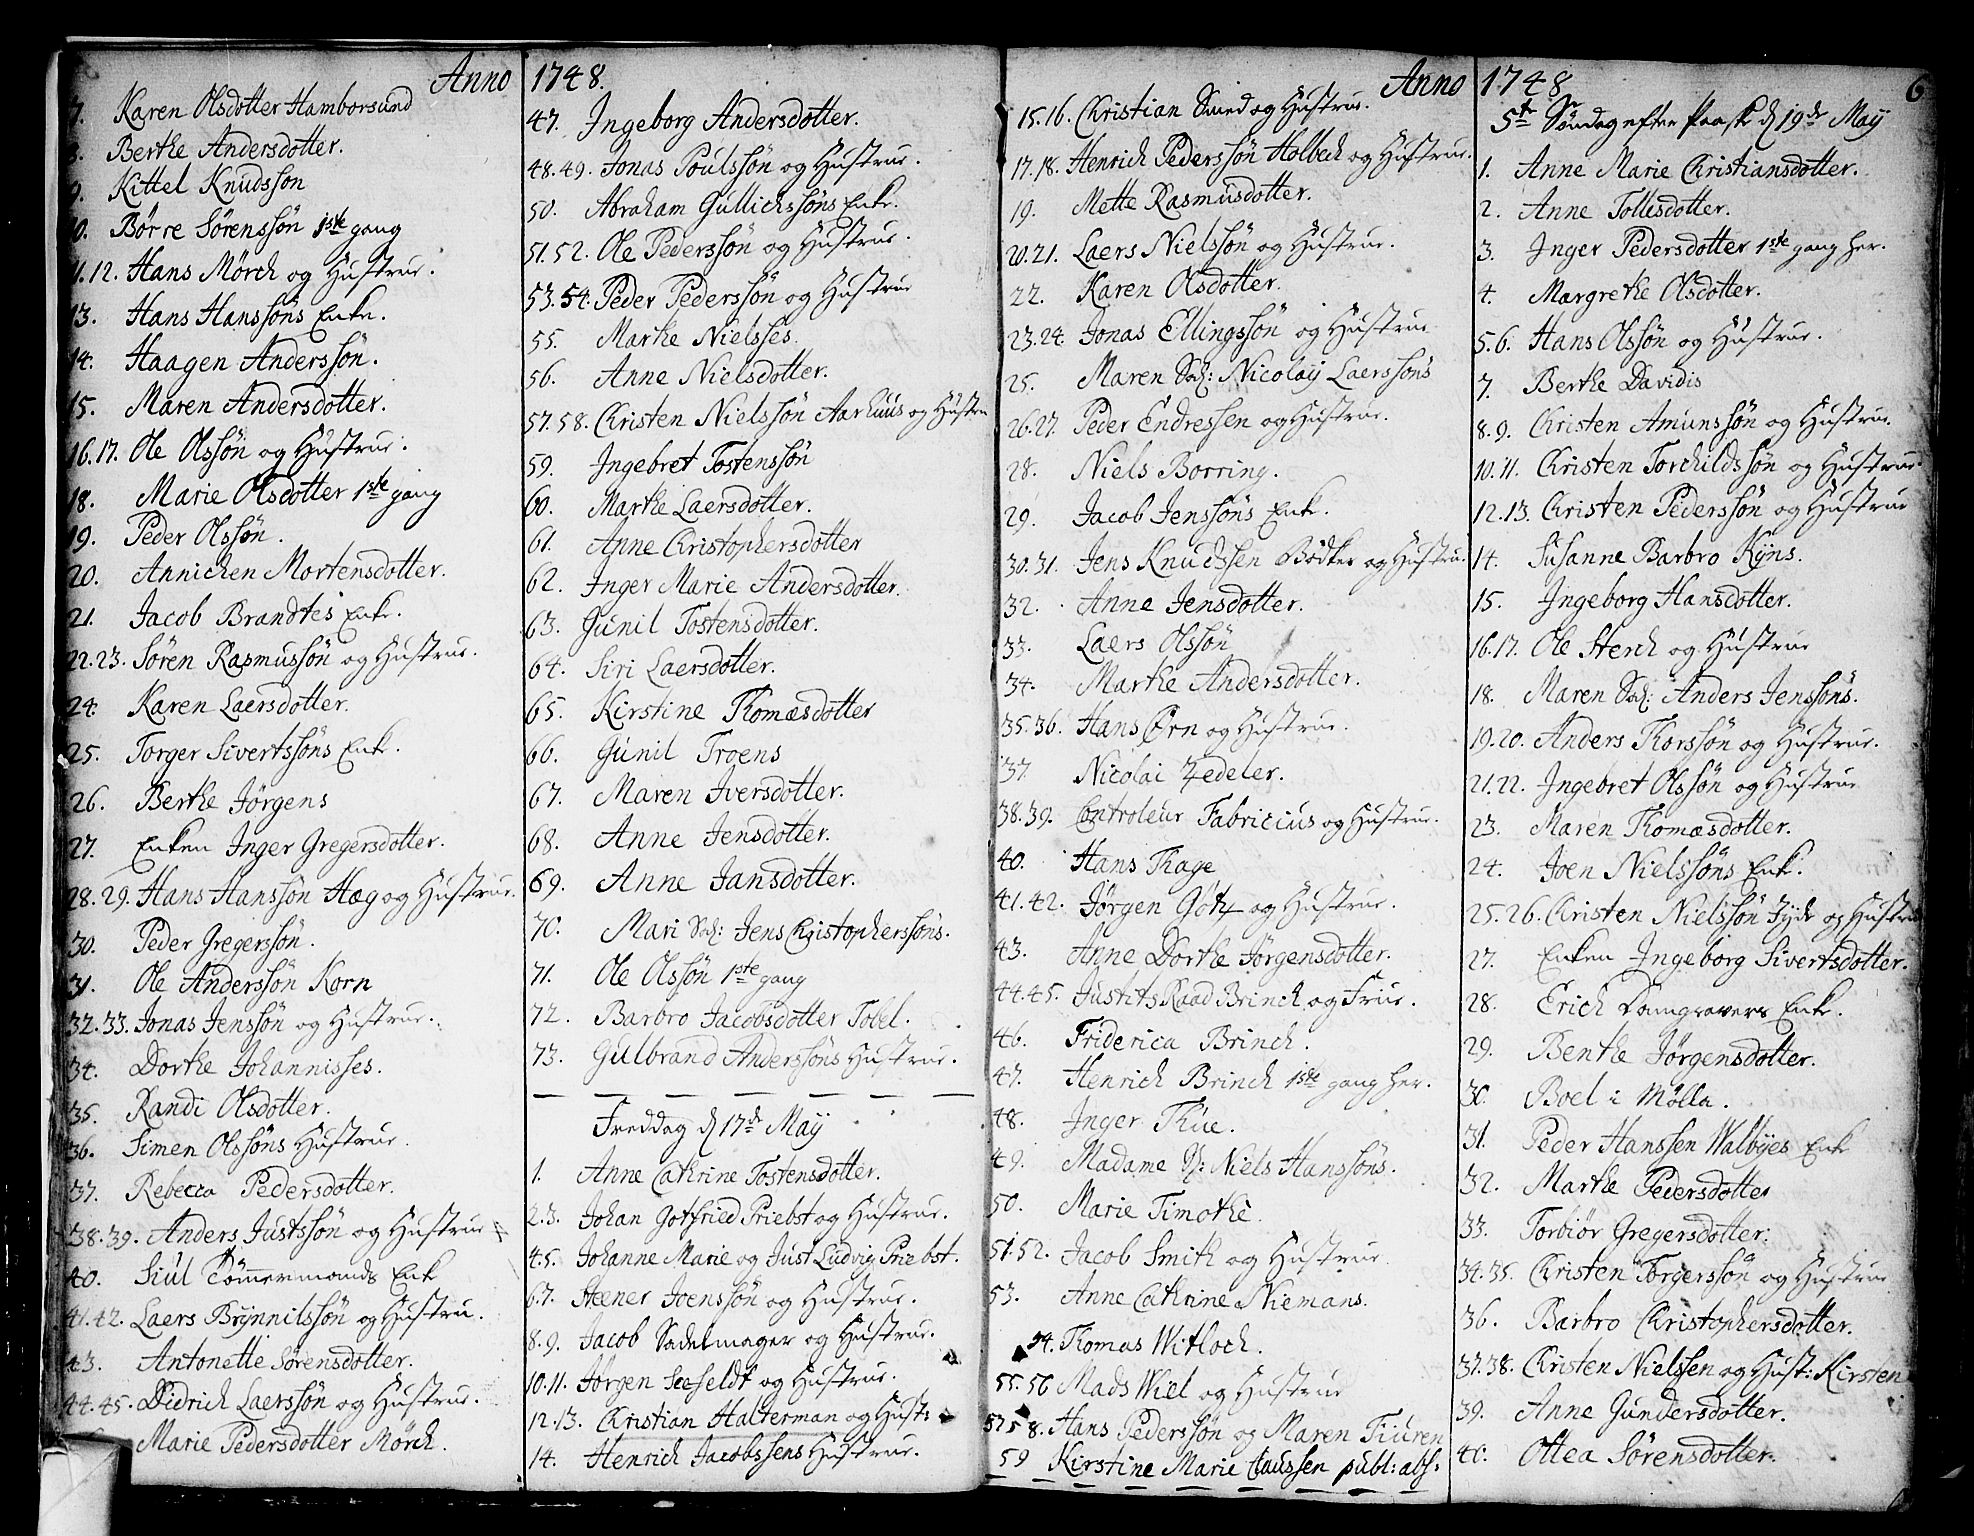 Anno 1748.
7. Karen Olsdotter Hamborsund
8. Berthe Andersdotter.
9. Kittel Knudsson
10. Børre Sörenssön 1ste gang
11.12. Hans Mörch og Hustrue.
13. Hans Hanssöns Enke.
14. Haagen Anderssön.
15. Maren Andersdotter.
16.17. Ole Olssön og Hustrue.
18. Marie Olsdotter 1ste gang
19. Peder Olssön.
20. Annichen Mortensdotter.
21. Jacob Brandtes Enke.
22.23. Sören Rasmussön og Hustrue.
24. Karen Laersdotter.
25. Torger Sivertssöns Enke.
26. Berthe Jörgens
27. Enken Inger Gregersdotter.
28.29. Hans Hanssön Hæg og Hustrue.
30. Peder Gregerssön.
31. Ole Anderssön Korn
32.33. Jonas Jenssön og Hustrue.
34. Dorthe Johannisses.
35. Randi Olsdotter.
36. Simen Olssöns Hustrue.
37. Rebecca Pedersdotter.
38.39. Anders Justssön og Hustrue
40. Siul Tömmermands Enke
41.42. Laers Brynnilssön og Hustru.
43. Antonette Sörensdotter.
44.45. Didrich Laerssön og Hustrue.
Marie Pedersdotter Mörch.
47. Ingeborg Andersdotter.
48.49. Jonas Poulssön og Hustrue.
50. Abraham Gullichssöns Enke.
51.52. Ole Pederssön og Hustrue.
53.54. Peder Pederssön og Hustrue
55. Marthe Nielsses.
56. Anne Nielsdotter.
57.58. Christen Nielssön Aarhuus og Hustru
59. Ingebret Tostenssön
60. Marthe Laersdotter.
61. Anne Christophersdotter
62. Inger Marie Andersdotter.
63. Gunil Tostensdotter.
64. Siri Laersdotter.
65. Kirstine Thomæsdotter
66. Gunil Troens
67. Maren Iversdotter.
68. Anne Jensdotter.
69. Anne Jansdotter.
70. Mari Sal: Jens Christopherssöns.
71. Ole Olssön 1ste gang
72. Barbro Jacobsdotter Tobel.
73. Gulbrand Anderssöns Hustrue.
Freddag d 17de May
1. Anne Cathrine Tostensdotter.
2.3. Johan Gotfried Priebst og Hustrue.
4.5. Johanne Marie og Just Ludvig Priebst.
6.7. Steener Joenssön og Hustrue.
8.9. Jacob Sadelmager og Hustrue.
10.11. Jörgen Seefeldt og Hustrue.
12.13. Christian Halterman og Hust:
14. Henrich Jacobssens Hustrue.
Anno 1748 6
15.16. Christian Smed og Hustrue.
17.18. Henrich Pederssön Holbech og Hustrue.
19. Mette Rasmusdotter.
20.21. Laers Nielssön og Hustrue.
22. Karen Olsdotter.
23.24. Jonas Ellingssön og Hustrue
25. Maren Sal: Nicolaij Laerssöns
26.27. Peder Endressen og Hustrue.
28. Niels Borring.
29. Jacob Jenssöns Enke.
30.31. Jens Knudssen Bödker og Hustru.
32. Anne Jensdotter.
33. Laers Olssön
34. Marthe Andersdotter.
35.36. Hans Ørn og Hustrue.
37. Nicolai Zedeler.
38.39. Controleur Fabricius og Hustrue.
40. Hans Thage
41.42. Jörgen Götz og Hustrue.
43. Anne Dorthe Jörgensdotter.
44.45. Justits Raad Brinch og Frue.
46. Friderica Brinch.
47. Henrich Brinch 1ste gang her.
48. Inger Thue.
49. Madame Sl: Niels Hanssöns.
50. Marie Timothe.
51.52. Jacob Smith og Hustrue
53. Anne Cathrine Niemans.
54. Thomas Witloch.
55.56 Mads Wiel og Hustrue
57.58. Hans Pederssön og Maren Fiuren
59 Kirstine Marie Claussen publ: abs:
5te Søndag efter Paaske d 19de May
1. Anne Marie Christiansdotter.
2. Anne Tollisdotter.
3. Inger Pedersdotter 1ste gang her.
4. Margrethe Olsdotter.
5.6. Hans Olssön og Hustrue.
7. Berthe Davidis
8.9. Christen Amunssön og Hustrue.
10.11. Christen Torchildssön og Hustrue.
12.13. Christen Pederssön og Hustrue
14. Susanne Barbro Kyns.
15. Ingeborg Hansdotter.
16.17. Ole Sterch og Hustrue
18. Maren Sal: Anders Jenssöns.
19.20. Anders Thorssön og Hustrue.
21.22. Ingebret Olssön og Hustrue
23. Maren Thomæsdotter.
24. Joen Nielssöns Enke.
25.26. Christen Nielssön Jyde og Hustru
27. Enken Ingeborg Sivertsdotter.
28. Erich Damgravers Enke.
29. Benthe Jörgensdotter.
30. Boel i Mölla.
31. Peder Hanssen Walbyes Enke
32. Marthe Pedersdotter
33. Torbiör Gregersdotter.
34.35. Christen Torgerssön og Hustrue
36. Barbro Christophersdotter.
37.38. Christen Nielssen og Hust: Kirsten
39. Anne Gundersdotter.
40. Ottea Sörensdotter.